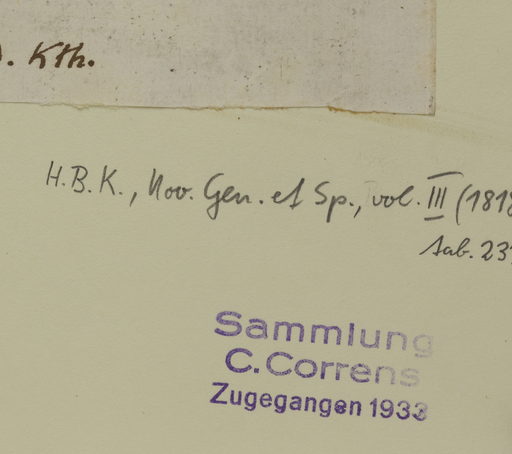 . Kth.
H.B.K., Nov. Gen. et Sp., vol. III (1818
tab. 23
Sammlung
C. Correns
Zugegangen 1933